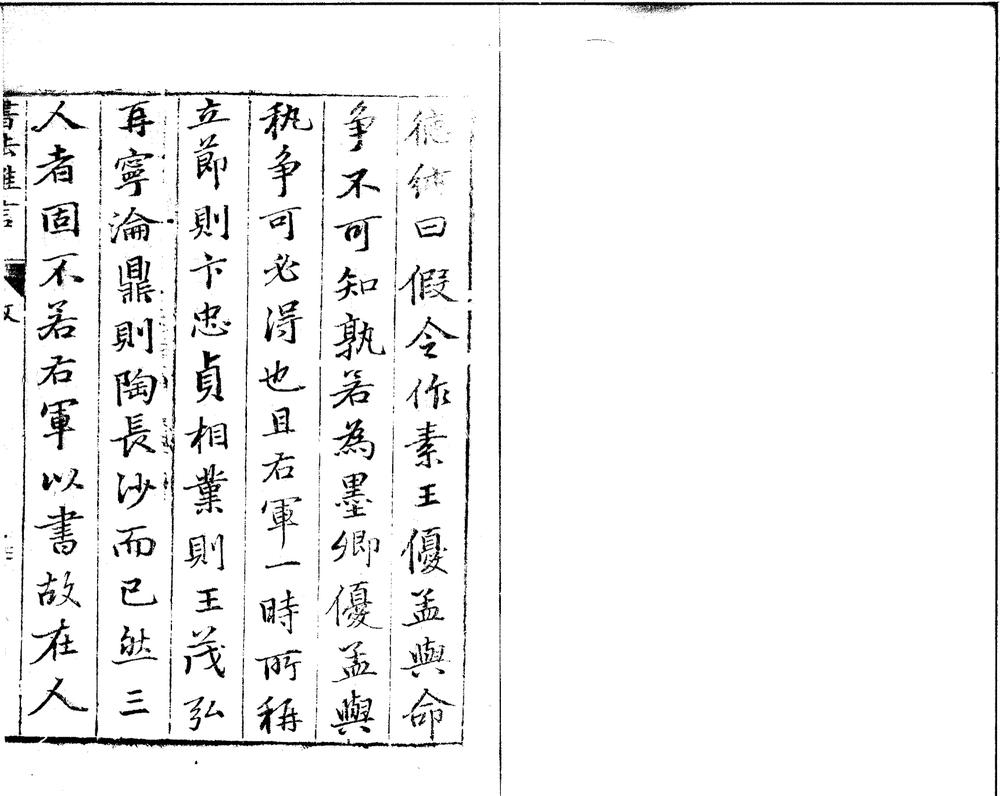 德純曰假令作素王優孟與命
爭不可知孰若為墨卿優孟與
執爭可必得也且右軍一時所稱
立節則卞忠貞相業則王茂弘
再寧淪鼎則陶長沙而已然三
人者固不若右軍以書故在人
書法雅言